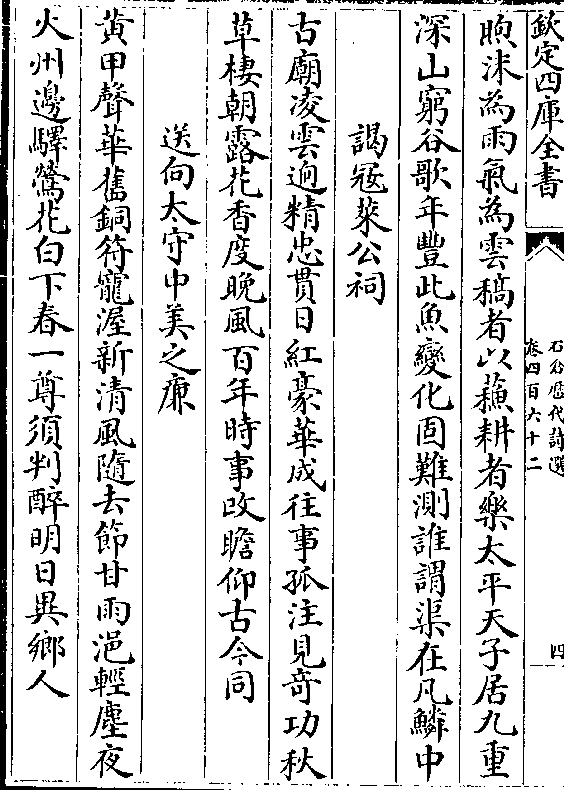 欽定四庫全書
石倉歷代詩選
卷四百六十二
四
昫沬為雨氣為雲稿者以蘓耕者樂太平天子居九重
深山窮谷歌年豐此魚變化固難測誰謂渠在凡鱗中
謁寇萊公祠
古廟凌雲逈精忠貫日紅豪華成往事孤注見竒功秋
草棲朝露花香度晚風百年時事改瞻仰古今同
送向太守中美之廉
黄甲聲華舊銅符寵渥新清風隨去節甘雨浥輕塵夜
火州邊驛鶯花白下春一尊須判醉明日異鄉人